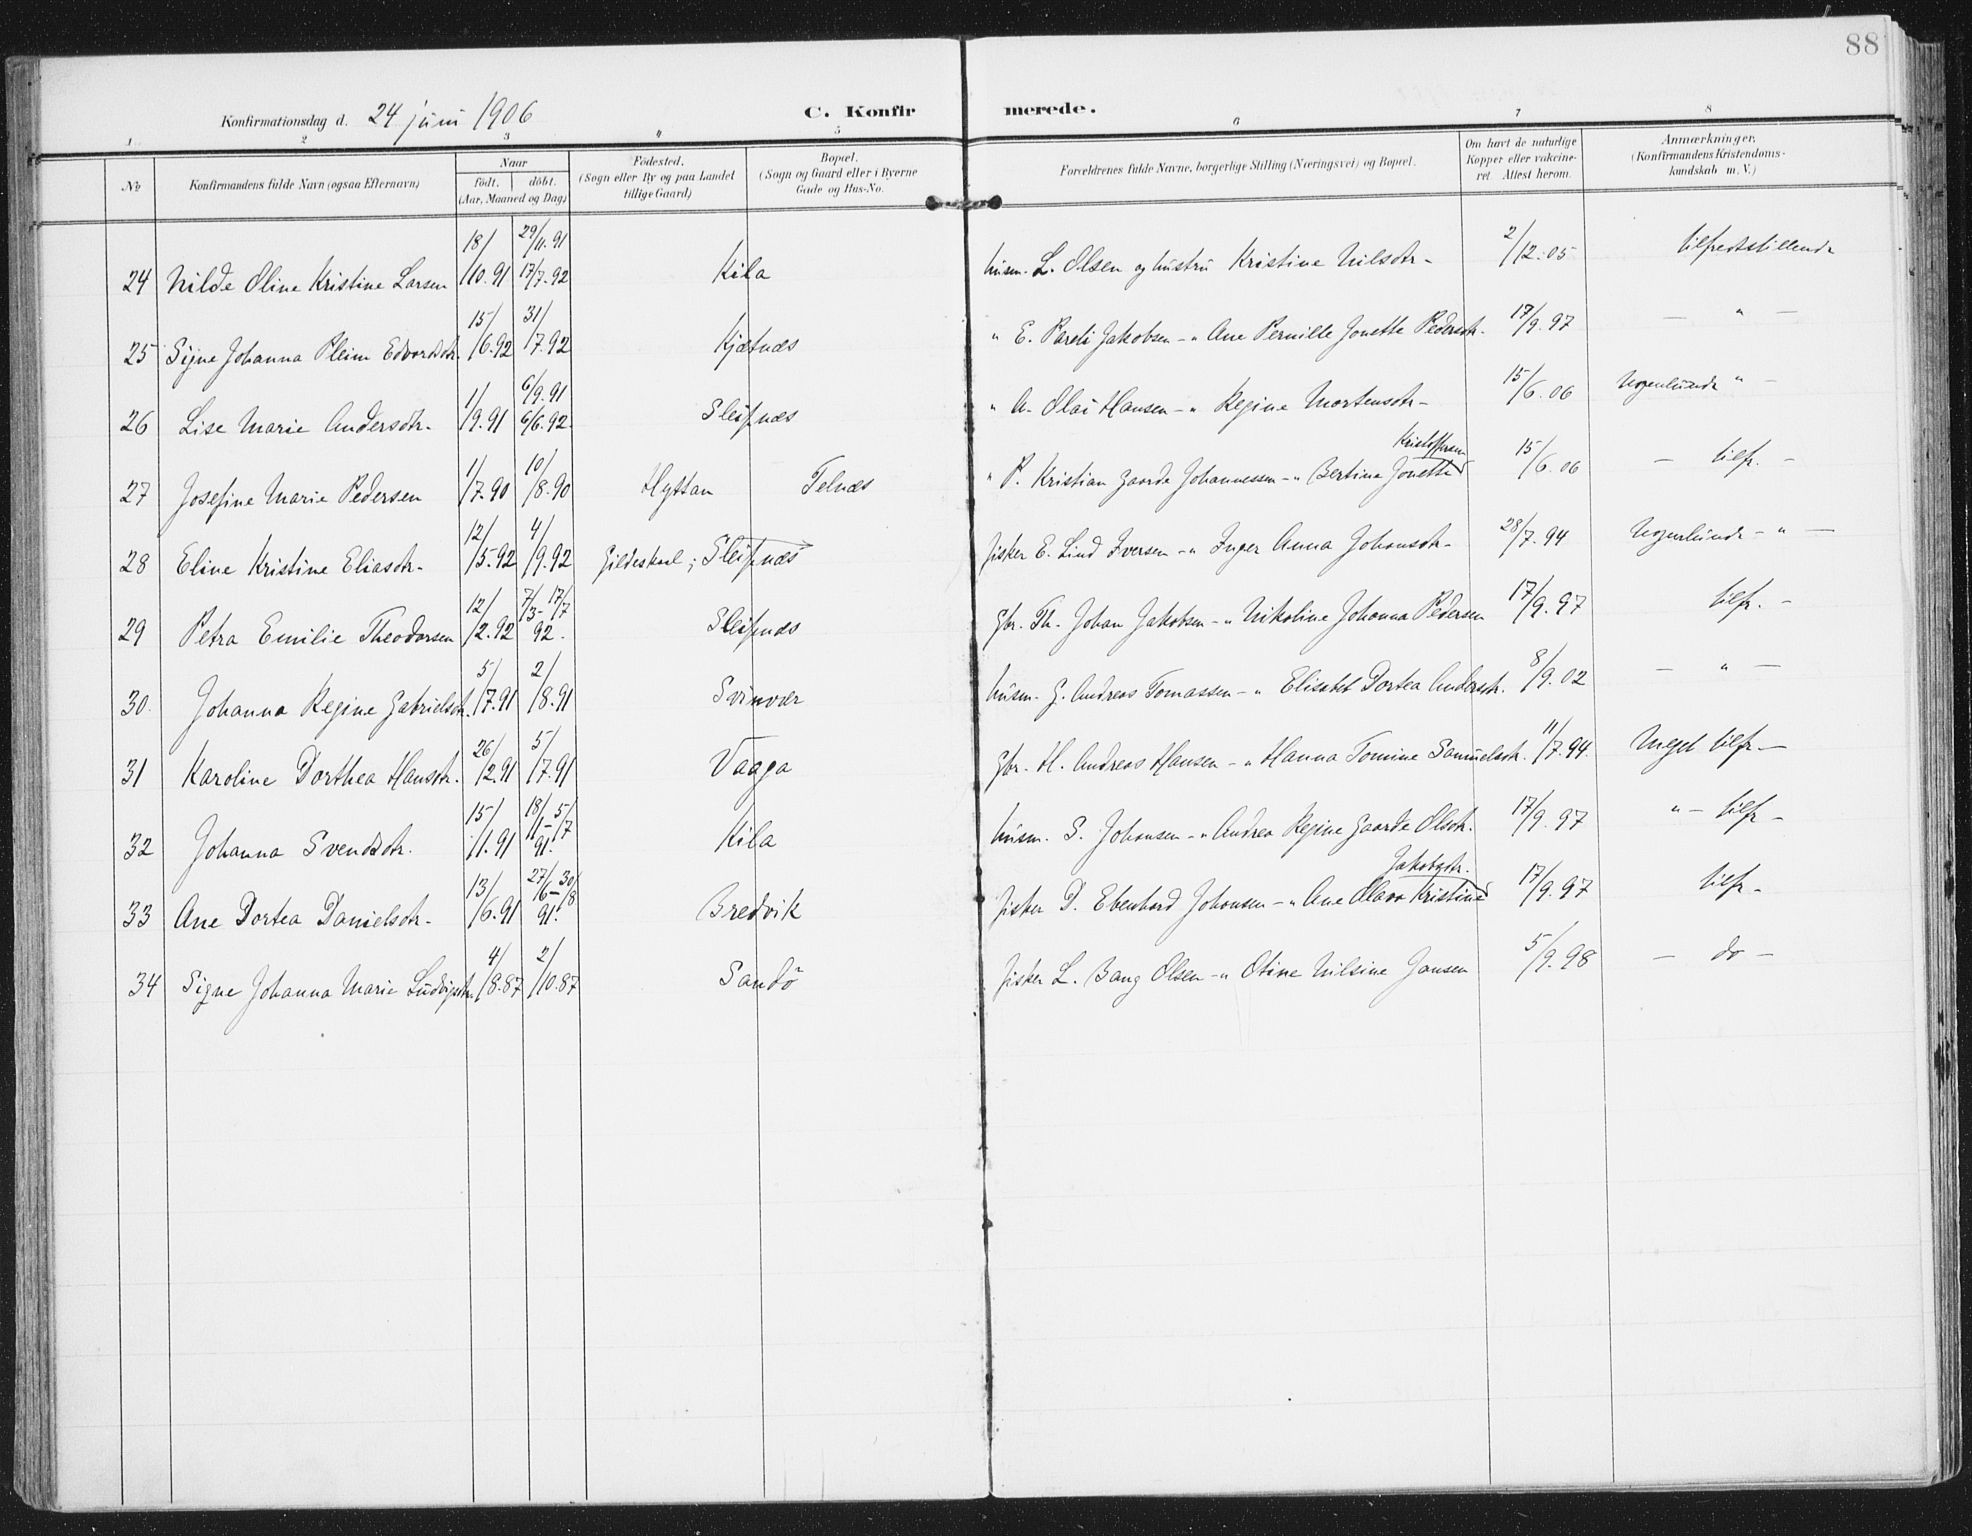 88
Konfirmationsdag d. 24 juni 1906 C. Konfirmerede.
1 2 3 4 5 6 7 8
No Konfirmandens fulde Navn (ogsaa Efternavn) Naar født. døbt. (Aar, Maaned og Dag) Fødested. (Sogn eller By og paa Landet tillige Gaard) Bopæl. (Sogn og Gaard eller i Byerne Gade og Hus-No. Forældrenes fulde Navne, borgerlige Stilling (Næringsvei) og Bopæl. Om havt de naturlige Kopper eller vakcineret. Attest herom. Anmærkninger. (Konfirmandens Kristendomskundskab m. V.)
24 Hilde Oline Kristine Larsen 18/10.91 29/11.91 17/7.92 Kila husm. L. Olsen og hustru Kristine Nilsdtr- 2/12.05 tilfredsstillende
25 Signe Johanna Pleim Edvardsdtr. 15/6.92 31/7.92 Kjætnæs " E. Pareli Jakobsen - " Ane Pernille Jonette Pedersdtr. 17/9.97 — " —
26 Lise Marie Andersdtr. 1/9.91 6/9.91 6/6.92 Sleipnæs " A. Olai Hansen - " Regine Mortensdtr- 15/6.06 Nogenlunde " -
27 Josefine Marie Pedersen 1/7.90 10/8.90 Hyttan Felnæs " P. Kristian Gaarde Johannessen - " Bertine Jonette Kristoffersen 15/6.06 — tilfr. -
28 Eline Kristine Eliasdtr. 12/5.92 4/9.92 Gildeskaal; Sleipnæs fisker E. Lind Iversen - " Inger Anna Johansdtr- 28/7.94 Nogenlunde - " —
29 Petra Emilie Theodorsen 12/2.92 7/3- 17/7 92. Sleipnæs Gbr. Th. Johan Jakobsen - " Nikoline Johanna Pedersen 17/9.97 tilfr. -
30 Johanna Regine Gabrielsdtr. 5/7.91 2/8.91 Svinvær husm. G. Andreas Tomassen - " Elisabet Dortea Andersdtr. 8/9.02 — " —
31 Karoline Dorthea Hansdtr. 26/2.91 5/7.91 Vaaga Gbr. H. Andreas Hansen - " Hanna Tomine Samuelsdtr. 11/7.94. Meget tilfr —
32 Johanna Svendsdtr. 15/11.91 18/11- 5/7 91. Kila husm. S. Johansen - " Andrea Regine Gaarde Olsdtr. 17/9.97 " - tilfr -
33 Ane Dortea Danielsdtr. 13/6.91 27/6- 30/8 91. Bredvik fisker D. Ebenhard Johansen - " Ane Olava Kristine Jakobsdtr. 17/9.97 tilfr -
34 Signe Johanna Marie Ludvigsdtr. 4/8.87 2/10.87 Sandö fisker L. Bang Olsen - " Otine Nilsine Jansen 5/9.98 — do —